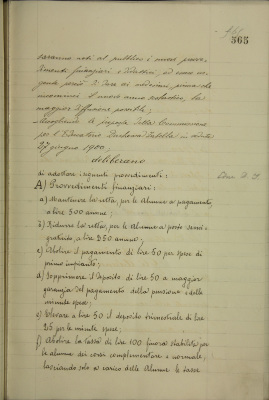 565
saranno noti al pubblico i nuovi prov-
vedimenti finanziari e didattici, ed essere ur-
gente perciò di dare ai medesimi, prima che
incominci il nuovo anno scolastico, la
maggior diffusione possibile;
Accogliendo le proposte della Commissione
per l'Educatorio Duchessa Isabella in seduta
27 giugno 1900,
deliberano
di adottare i seguenti provvedimenti:
A) Provvedimenti finanziari:
a) Mantenere la retta, per le alunne a pagamento,
a lire 500 annue;
b) Ridurre la retta, per le alunne a posto semi-
gratuito, a lire 250 annue;
c) Abolire il pagamento di lire 50 per spese di
primo impianto;
d) Sopprimere il deposito di lire 50 a maggior
garanzia del pagamento della pensione e delle
minute spese;
e) Elevare a lire 50 il deposito trimestrale di lire
25 per le minute spese;
f) Abolire la tassa di lire 100 finora stabilita per
le alunne dei corsi complementare e normale,
lasciando solo a carico delle alunne le tasse